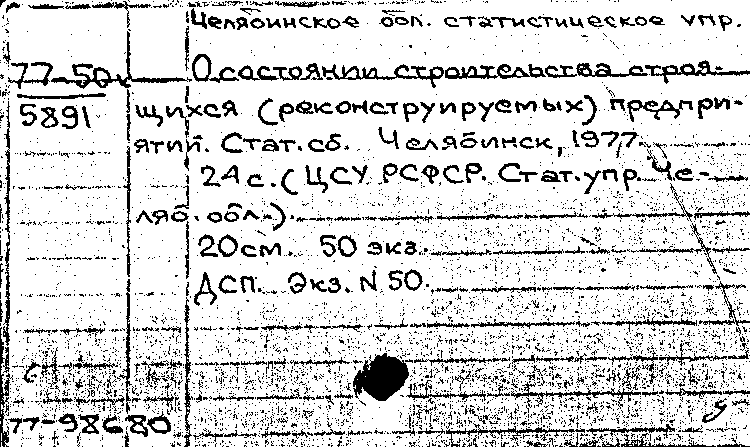 Челябинское обл. статистическое упр.
77-50
5891
О состоянии строительства строя-
щихся (реконструируемых) предпри-
ятий. Стат. сб. Челябинск, 1977.
24 с. (ЦСУ РСФСР. Стат. упр. Че-
ляб. обл.).
20см. 50 экз.
ДСП. Экз. N 50.
77-98680